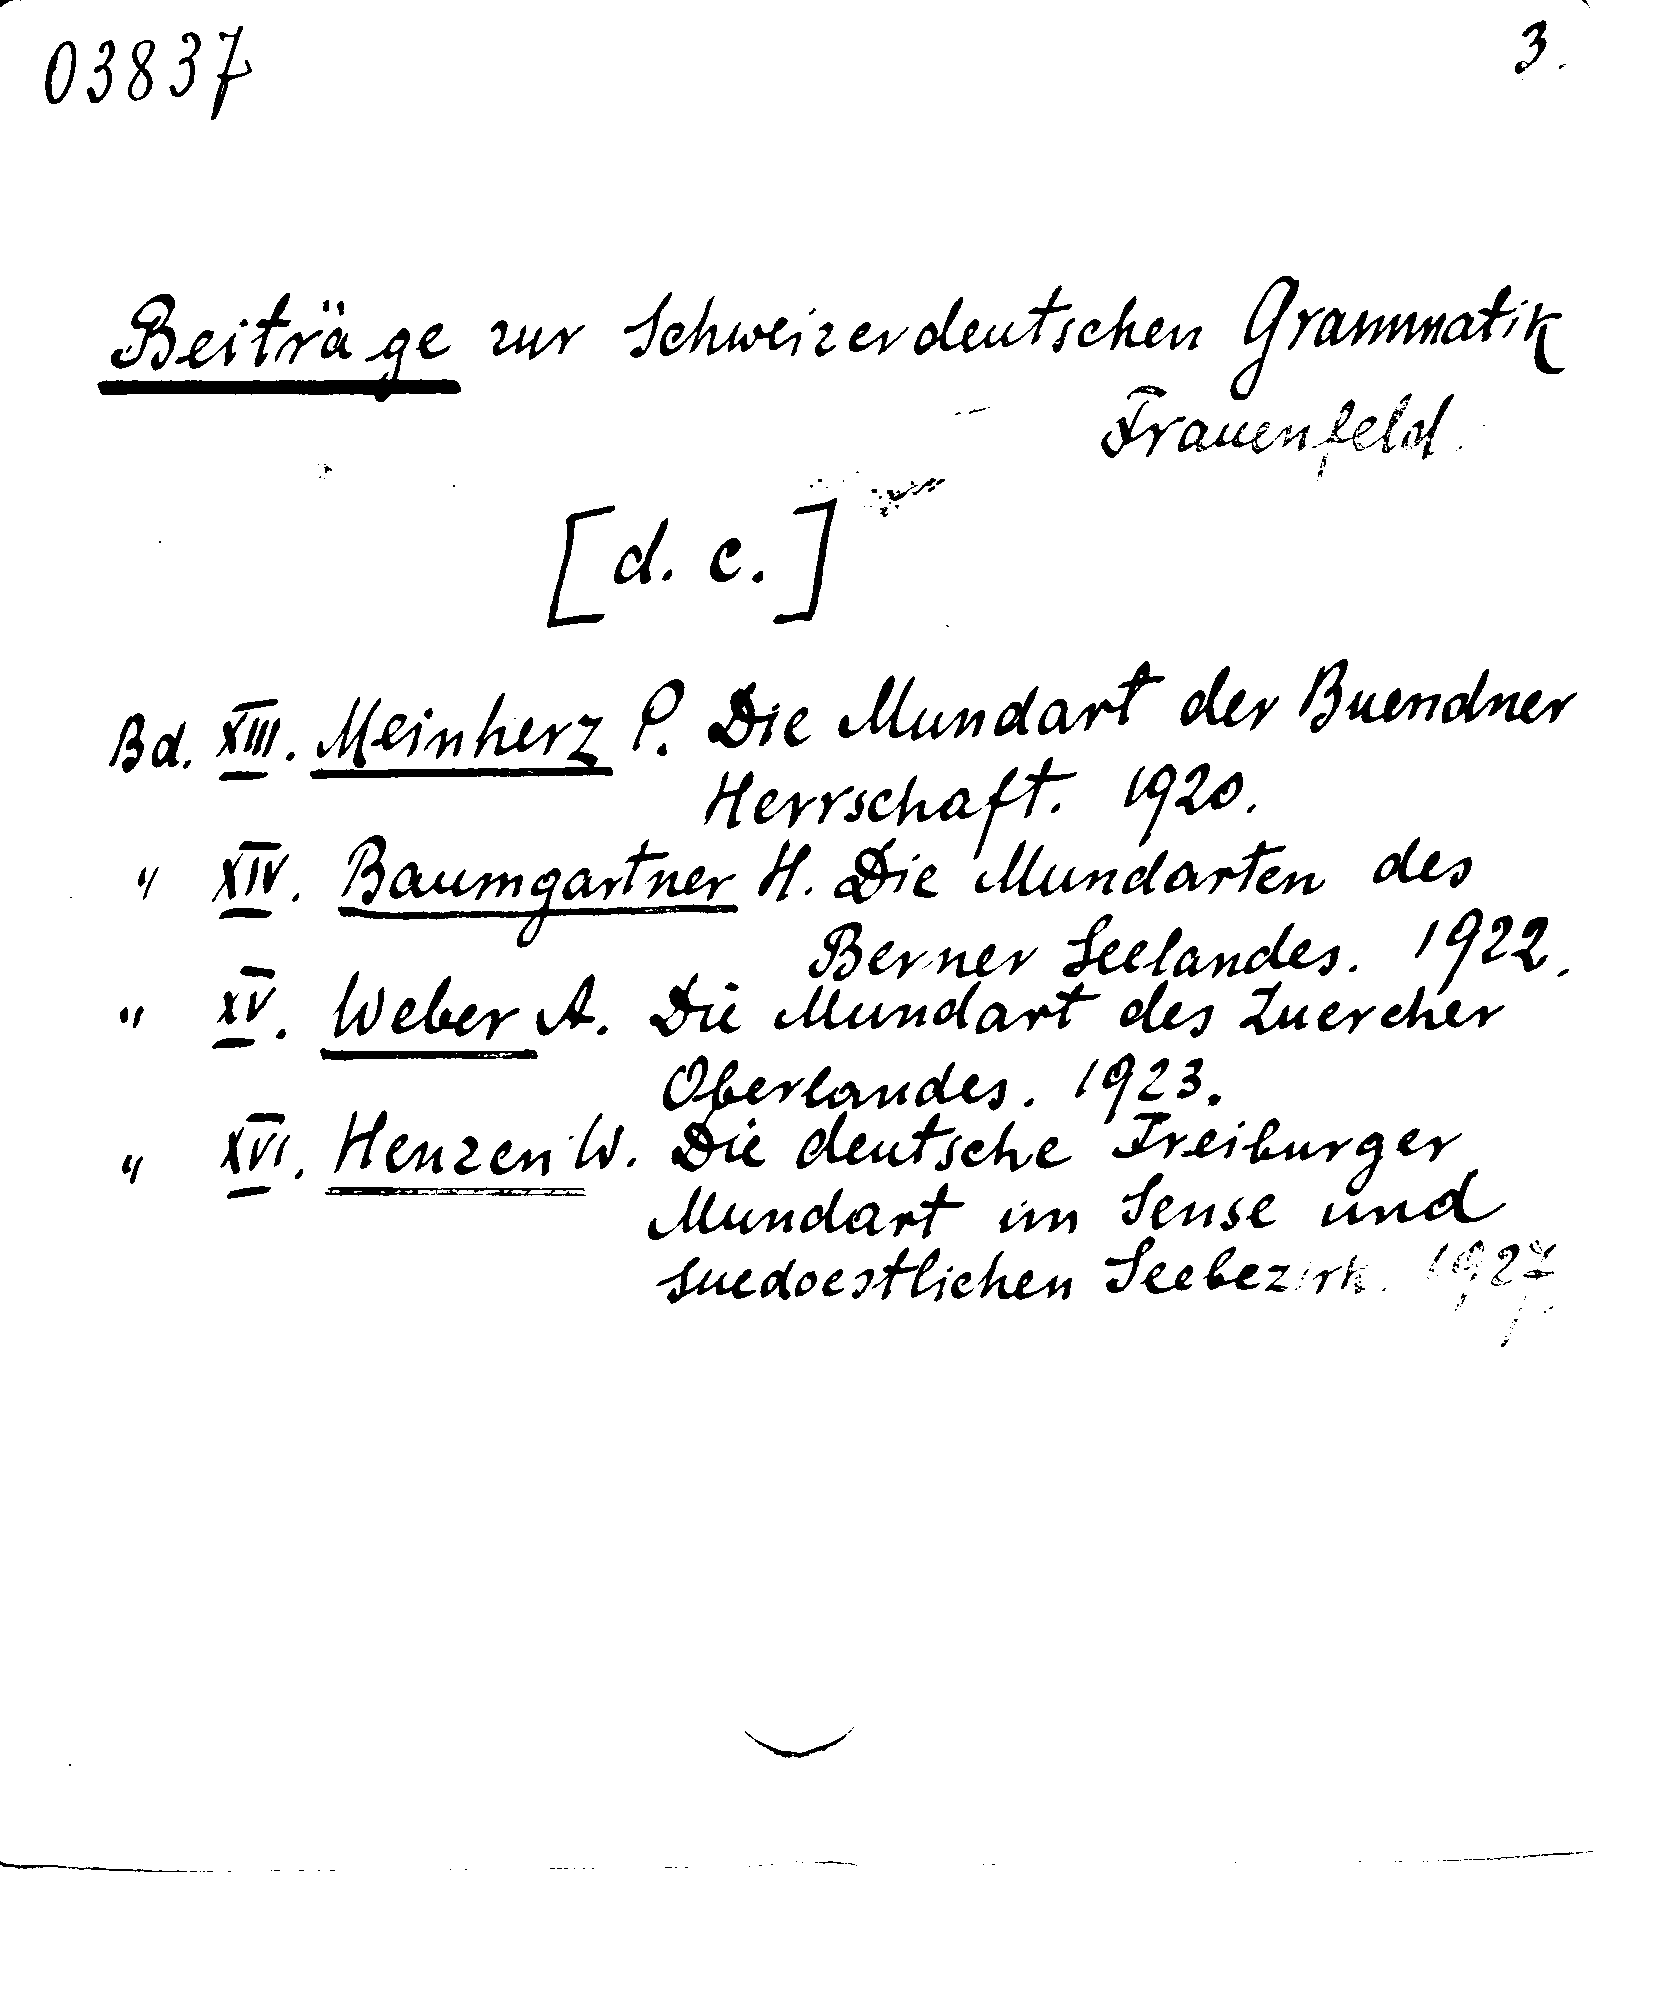 03837 3.
Beiträge zur Schweizerdeutschen Grammatik
Frauenfeld.
[d. c.]
Bd. XIII. Meinherz P. Die Mundart der Buendner
Herrschaft. 1920.
" XIV. Baumgartner H. Die Mundarten des
Berner Seelandes. 1922.
" XV. Weber A. Die Mundart des Zuercher
Oberlandes. 1923.
" XVI. Henzen W. Die deutsche Freiburger
Mundart im Sense und
suedoestlichen Seebezirk. 1927